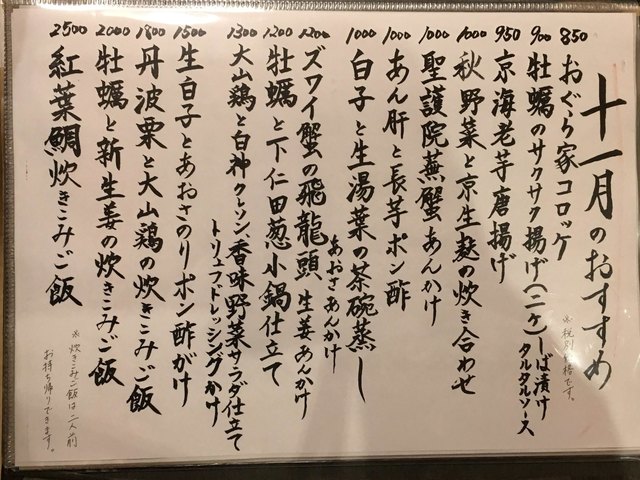 十一月のおすすめ
※税別価格です。
850 おぐら家コロッケ
900 牡蠣のサクサク揚げ(二ケ)しば漬けタルタルソース
950 京海老芋唐揚げ
1000 秋野菜と京生麩の炊き合わせ
1000 聖護院蕪蟹あんかけ
1000 あん肝と長芋ポン酢
1000 白子と生湯葉の茶碗蒸し
あおさあんかけ
1200 ズワイ蟹の飛龍頭 生姜あんかけ
1200 牡蠣と下仁田葱小鍋仕立て
1300 大山鶏と白神クレソン、香味野菜サラダ仕立て
トリュフドレッシングかけ
1500 生白子とあおさのりポン酢がけ
1800 丹波栗と大山鶏の炊きこみご飯
2000 牡蠣と新生姜の炊きこみご飯
2500 紅葉鯛炊きこみご飯
※炊きこみご飯は二人前
お持ち帰りできます。